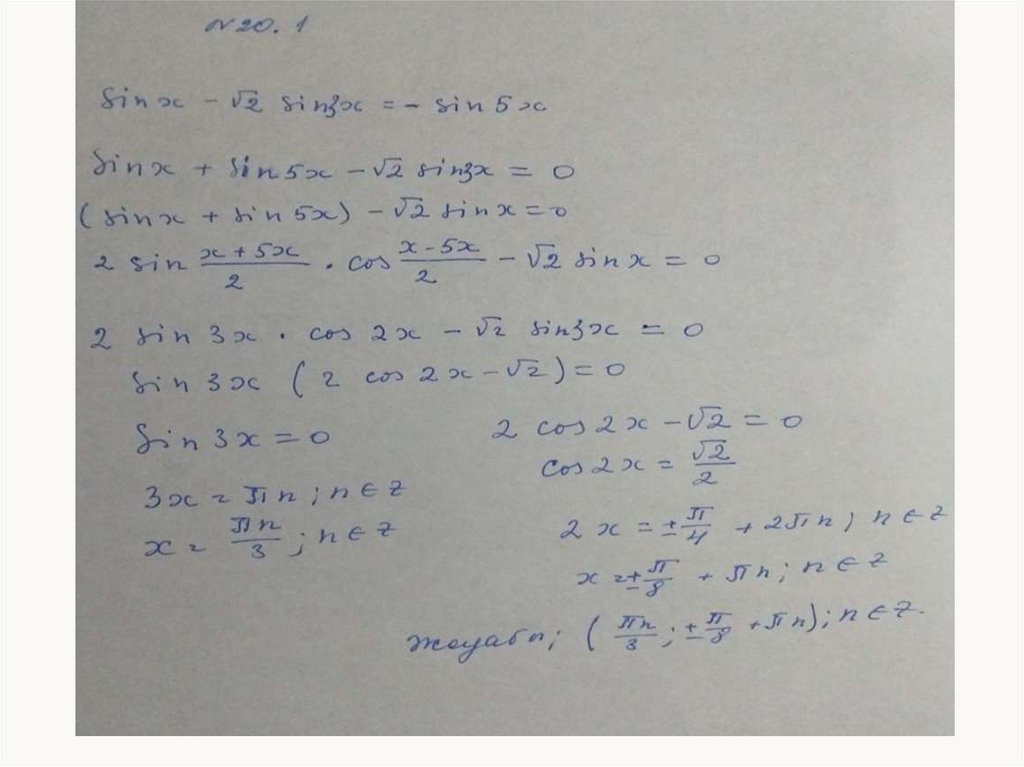 №20.1
sin x - √2 sin3x = - sin 5x
sin x + sin 5x - √2 sin3x = 0
(sin x + sin 5x) - √2 sin x = 0
2 sin (x + 5x)/2 · cos (x - 5x)/2 - √2 sin x = 0
2 sin 3x · cos 2x - √2 sin3x = 0
sin 3x (2 cos 2x - √2) = 0
sin 3x = 0
3x = πn ; n ∈ z
x = πn/3 ; n ∈ z
2 cos 2x - √2 = 0
cos 2x = √2/2
2x = ± π/4 + 2πn ; n ∈ z
x = ± π/8 + πn ; n ∈ z
жауабы; (πn/3 ; ± π/8 + πn); n ∈ z.